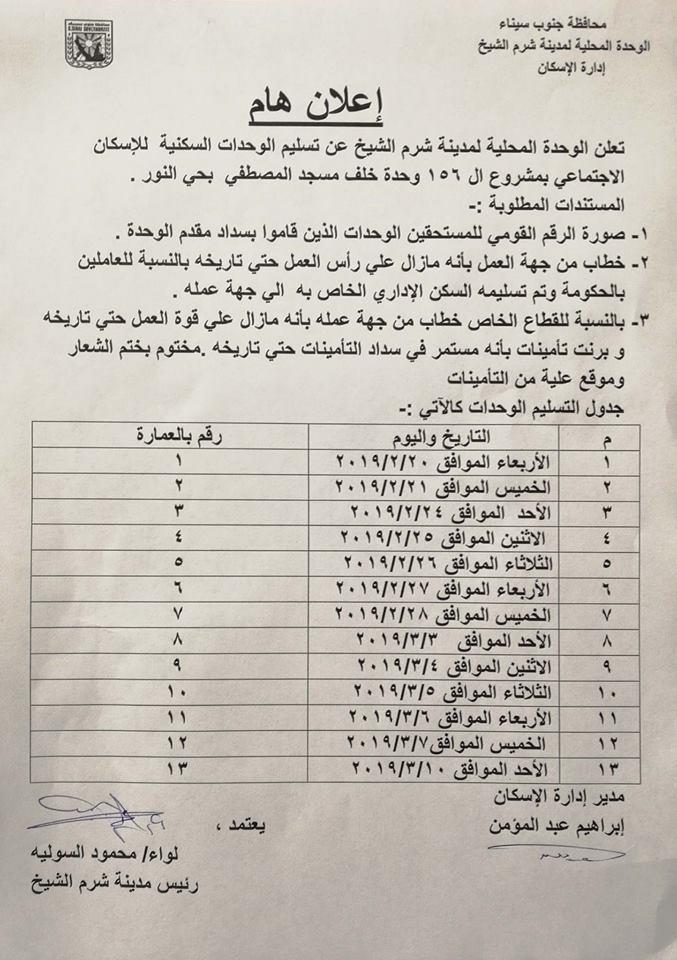 محافظة جنوب سيناء
الوحدة المحلية لمدينة شرم الشيخ
إدارة الإسكان
إعلان هام
تعلن الوحدة المحلية لمدينة شرم الشيخ عن تسليم الوحدات السكنية للإسكان
الاجتماعي بمشروع ال ١٥٦ وحدة خلف مسجد المصطفي بحي النور .
المستندات المطلوبة :-
١- صورة الرقم القومي للمستحقين الوحدات الذين قاموا بسداد مقدم الوحدة .
٢- خطاب من جهة العمل بأنه مازال علي رأس العمل حتي تاريخه بالنسبة للعاملين
بالحكومة وتم تسليمه السكن الإداري الخاص به الي جهة عمله .
٣- بالنسبة للقطاع الخاص خطاب من جهة عمله بأنه مازال علي قوة العمل حتي تاريخه
و برنت تأمينات بأنه مستمر في سداد التأمينات حتي تاريخه .مختوم بختم الشعار
وموقع علية من التأمينات
جدول التسليم الوحدات كالآتي :-
م التاريخ واليوم رقم بالعمارة
١ الأربعاء الموافق ٢٠١٩/٢/٢٠ ١
٢ الخميس الموافق ٢٠١٩/٢/٢١ ٢
٣ الأحد الموافق ٢٠١٩/٢/٢٤ ٣
٤ الاثنين الموافق ٢٠١٩/٢/٢٥ ٤
٥ الثلاثاء الموافق ٢٠١٩/٢/٢٦ ٥
٦ الأربعاء الموافق ٢٠١٩/٢/٢٧ ٦
٧ الخميس الموافق ٢٠١٩/٢/٢٨ ٧
٨ الأحد الموافق ٢٠١٩/٣/٣ ٨
٩ الاثنين الموافق ٢٠١٩/٣/٤ ٩
١٠ الثلاثاء الموافق ٢٠١٩/٣/٥ ١٠
١١ الأربعاء الموافق ٢٠١٩/٣/٦ ١١
١٢ الخميس الموافق٢٠١٩/٣/٧ ١٢
١٣ الأحد الموافق ٢٠١٩/٣/١٠ ١٣
مدير إدارة الإسكان
إبراهيم عبد المؤمن
يعتمد ،
لواء/ محمود السوليه
رئيس مدينة شرم الشيخ